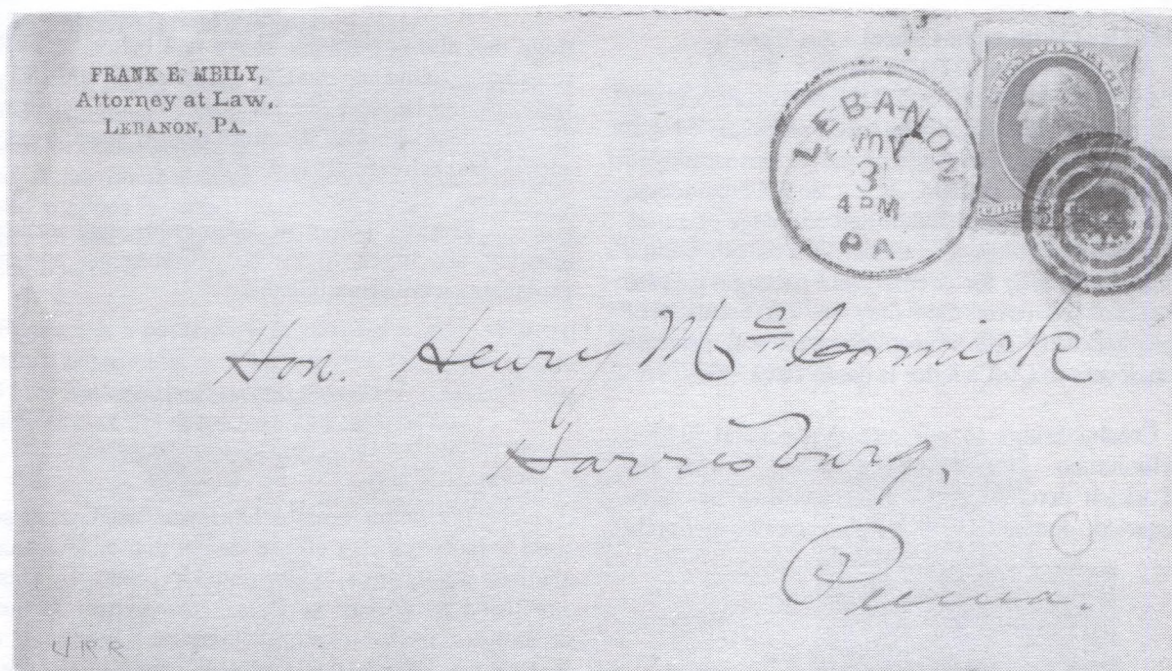 FRANK E. MEILY,
Attorney at Law,
LEBANON, PA.
LEBANON
3
4 PM
PA
Hon. Henry McCormick
Harrisburg,
Penna.